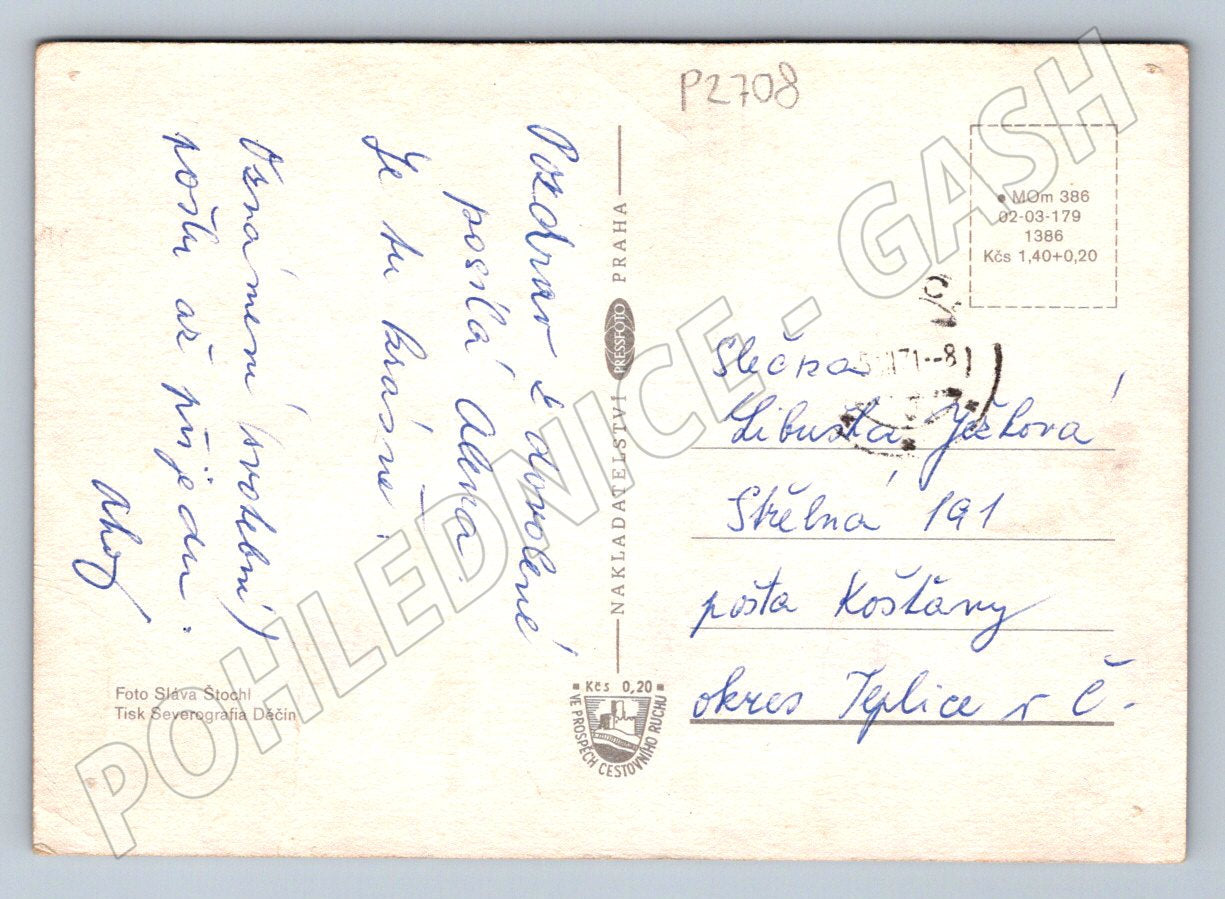 P2708
Pozdrav z dovolené
posílá Alena.
Je tu krásně.
Oznámení (svatební)
pošlu až přijedu.
Ahoj
NAKLADATELSTVÍ PRESSFOTO PRAHA
MOm 386
02-03-179
1386
Kčs 1,40+0,20
71--8
Slečna
Libuška Ježková
Střelná 191
pošta Košťany
okres Teplice v Č.
Foto Sláva Štochl
Tisk Severografia Děčín
Kčs 0,20
VE PROSPĚCH CESTOVNÍHO RUCHU
POHLEDNICE - GASH